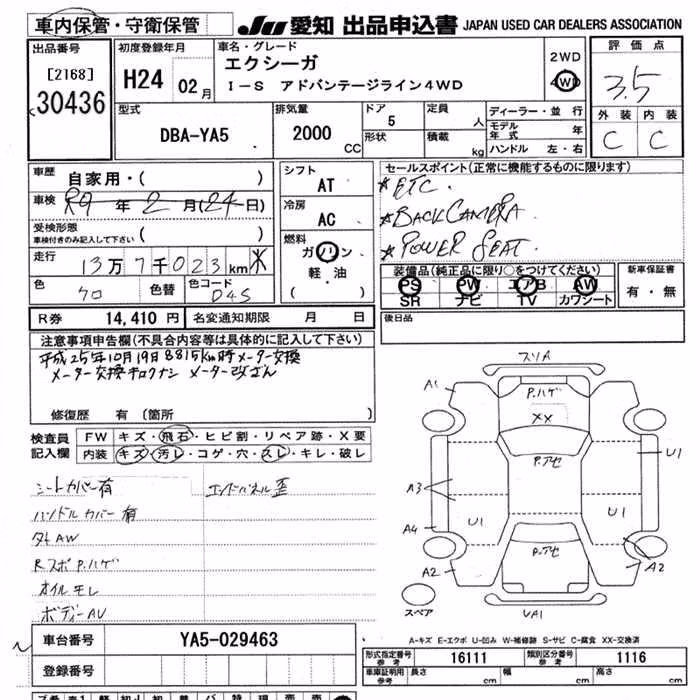 車内保管・守衛保管
JU 愛知 出品申込書 JAPAN USED CAR DEALERS ASSOCIATION
出品番号 [2168] 30436
初度登録年月 H24 02月
車名・グレード エクシーガ
I-S アドバンテージライン4WD
2WD
4WD
評価点 3.5
外装 内装
C C
型式 DBA-YA5
排気量 2000 CC
ドア 5 形状
定員 人 積載 kg
ディーラー・並行
モデル年式 年
ハンドル 左・右
車歴 自家用・( )
車検 R9年2月(24日)
受検形態 ( )
車検付きのみ記入して下さい
走行 13万7千023km
色 クロ 色替 色コード D4S
シフト AT
冷房 AC
燃料 ガソリン
軽・油
( )
セールスポイント(正常に機能するものに限ります)
★ETC.
★BACK CAMERA
★POWER SEAT.
装備品(純正品に限り○をつけてください)
PS PW エアB AW
SR ナビ TV カワシート
新車保証書
有・無
R券 14,410円 名変通知期限 月 日
後日品
注意事項申告欄(不具合内容等は具体的に記入して下さい)
平成25年10月19日8815km時メーター交換
メーター交換キロクナシ メーター改ざん
修復歴 有(箇所 )
検査員記入欄
FW キズ・飛石・ヒビ割・リペア跡・X要
内装 キズ・汚レ・コゲ・穴・スレ・キレ・破レ
シートカバー有 エンドパネル歪
ハンドルカバー有
タトAW
RスポP.ハゲ
オイルモレ
ボディーAU
スリA
A1
P.ハゲ
XX
P.アセ
U1
A3
A4
U1
U1
A2
P.アセ
A2
スペア
UA1
A-キズ E-エクボ U-凹み W-補修跡 S-サビ C-腐食 XX-交換済
車台番号 YA5-029463
登録番号
形式指定番号 参考 16111 類別区分番号 参考 1116
車庫証明用 参考 長さ cm 幅 cm 高さ cm